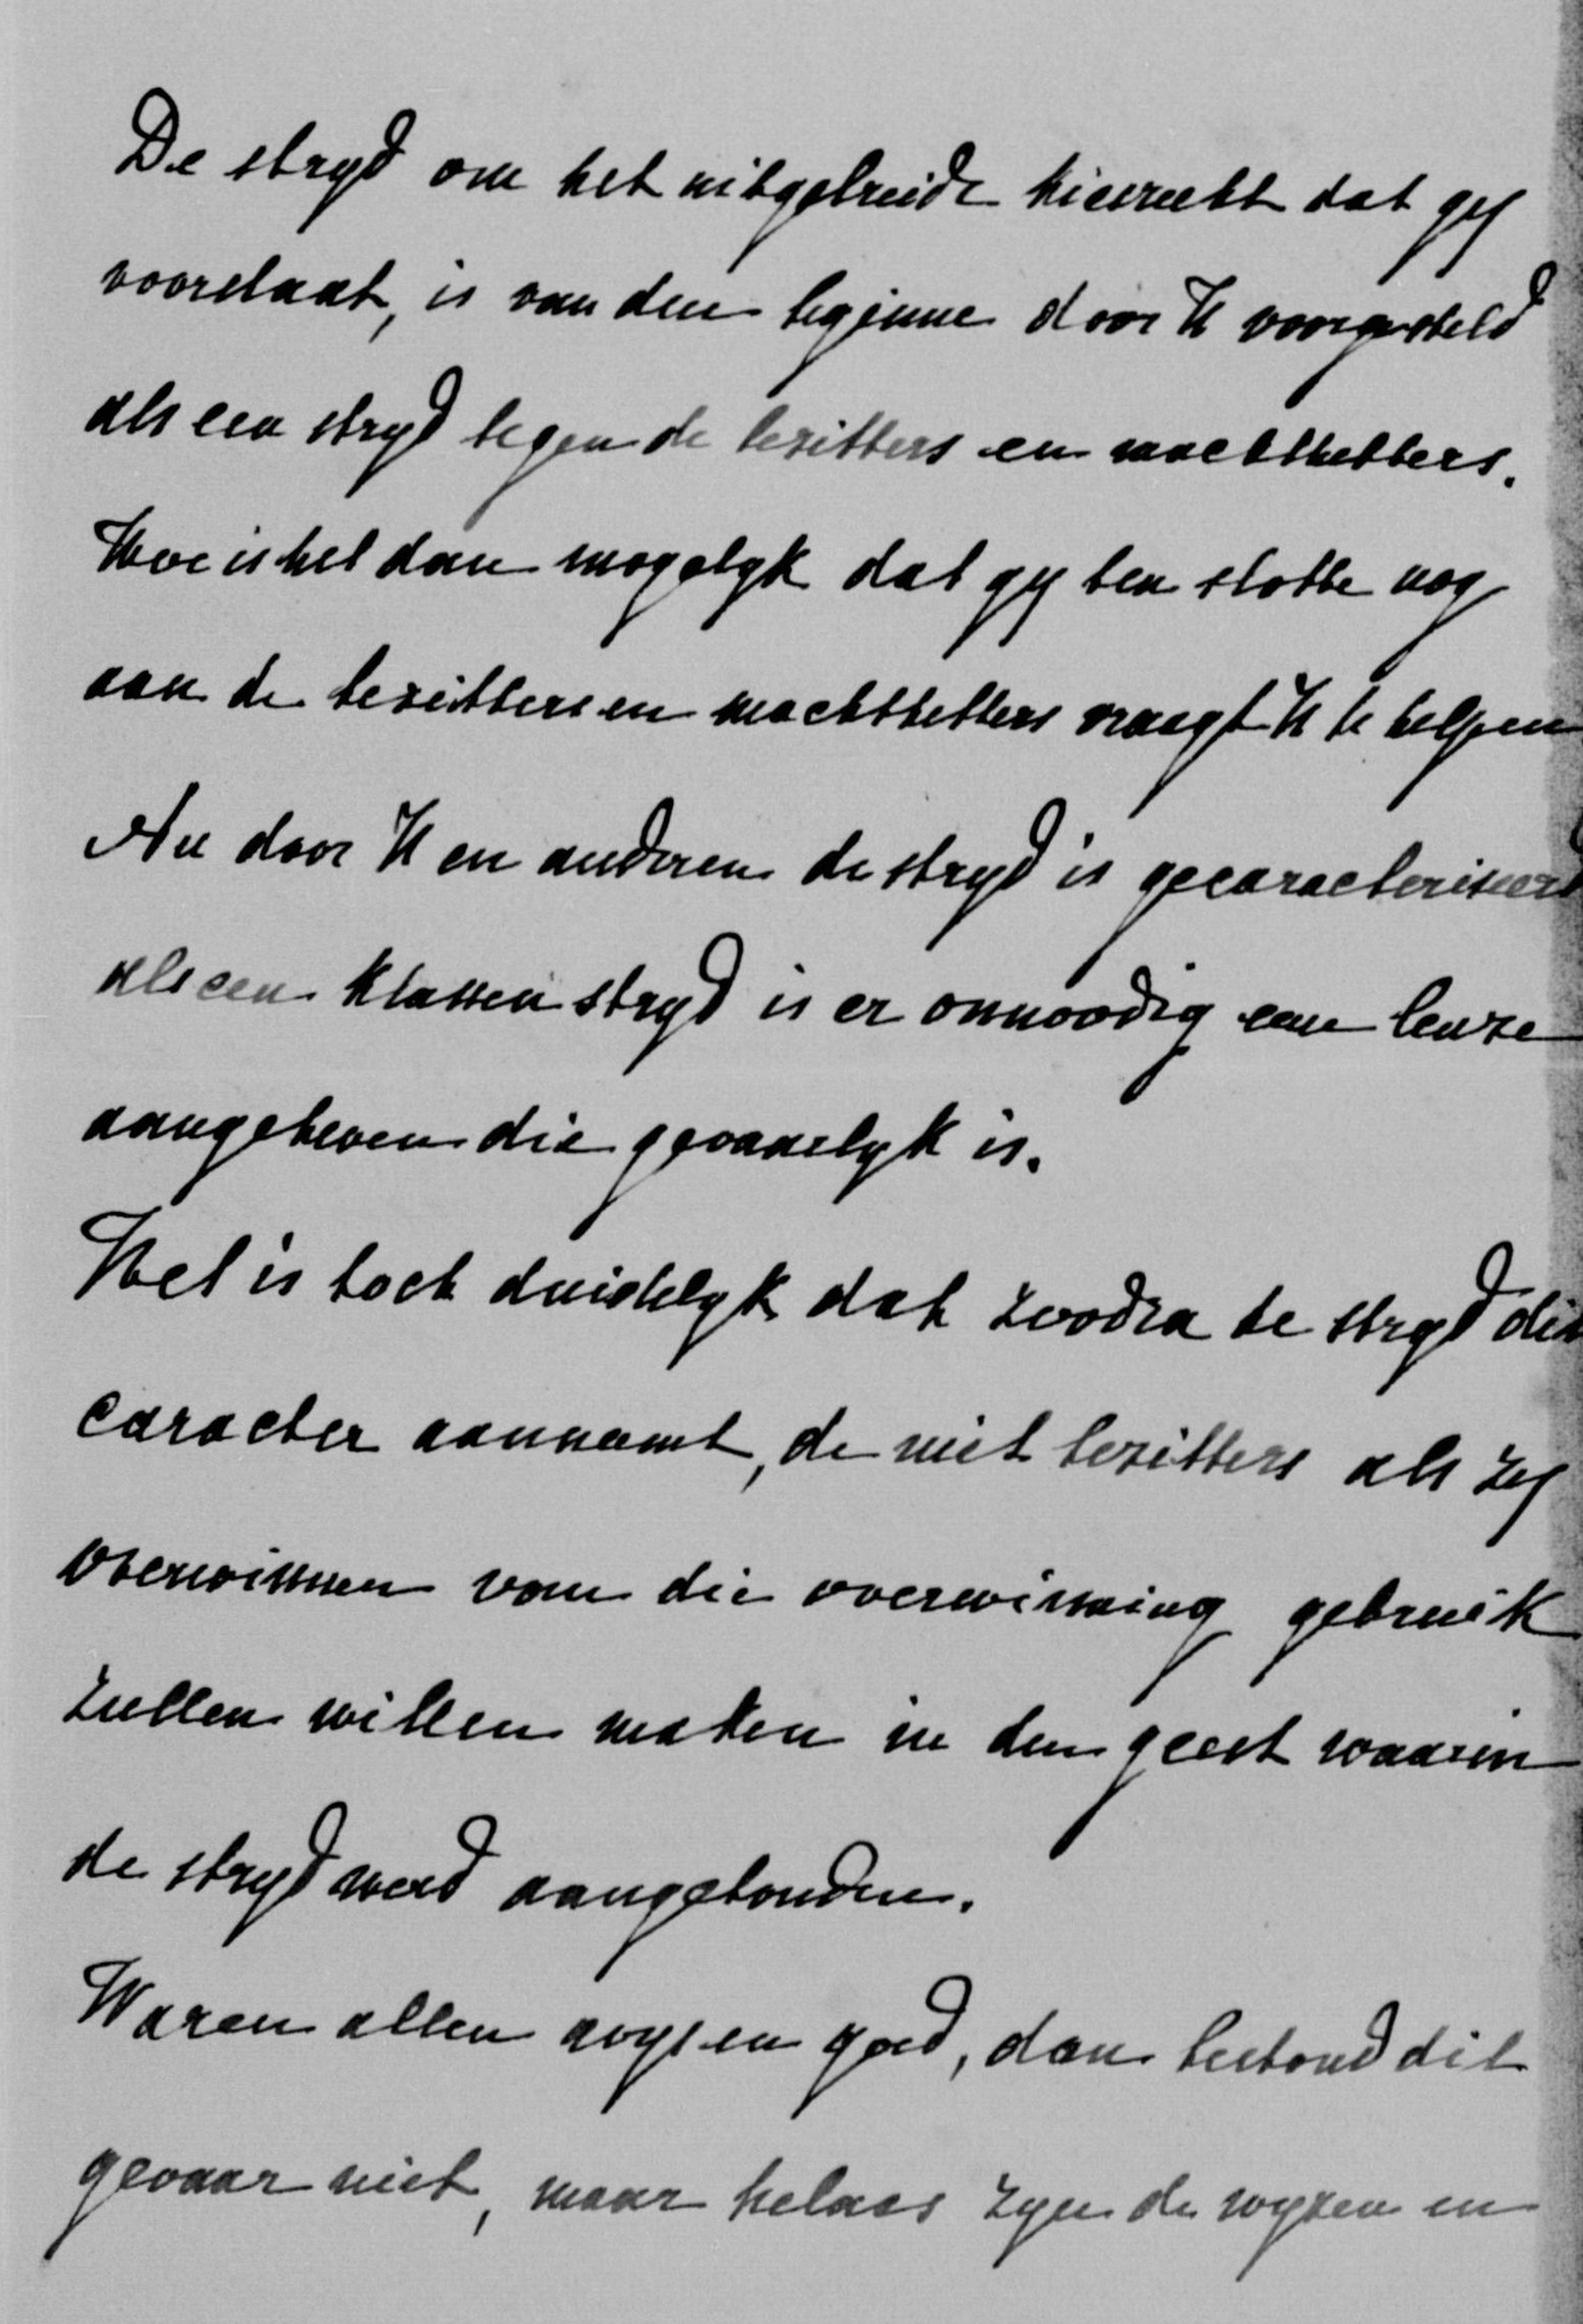 De stryd om het uitgebreide kiesrecht dat gy
voorstaat, is van den beginne door U voorgesteld
als een stryd tegen de bezitters en machthebbers.
Hoe is het dan mogelyk dat gy ten slotte nog
aan de bezitters en machthebbers vraagt U te helpen
Nu door U en anderen de stryd is gecaracteriseerd
als een klassenstryd is er onnoodig een leuze
aangeheven die gevaarlyk is.
Het is toch duidelyk dat zoodra de stryd dit
caracter aanneemt, de niet bezitters als zy
overwinnen van die overwinning gebruik
zullen willen maken in den geest waarin
de stryd werd aangebonden.
Waren allen wys en goed, dan bestond dit
gevaar niet, maar helaas zyn de wyzen en